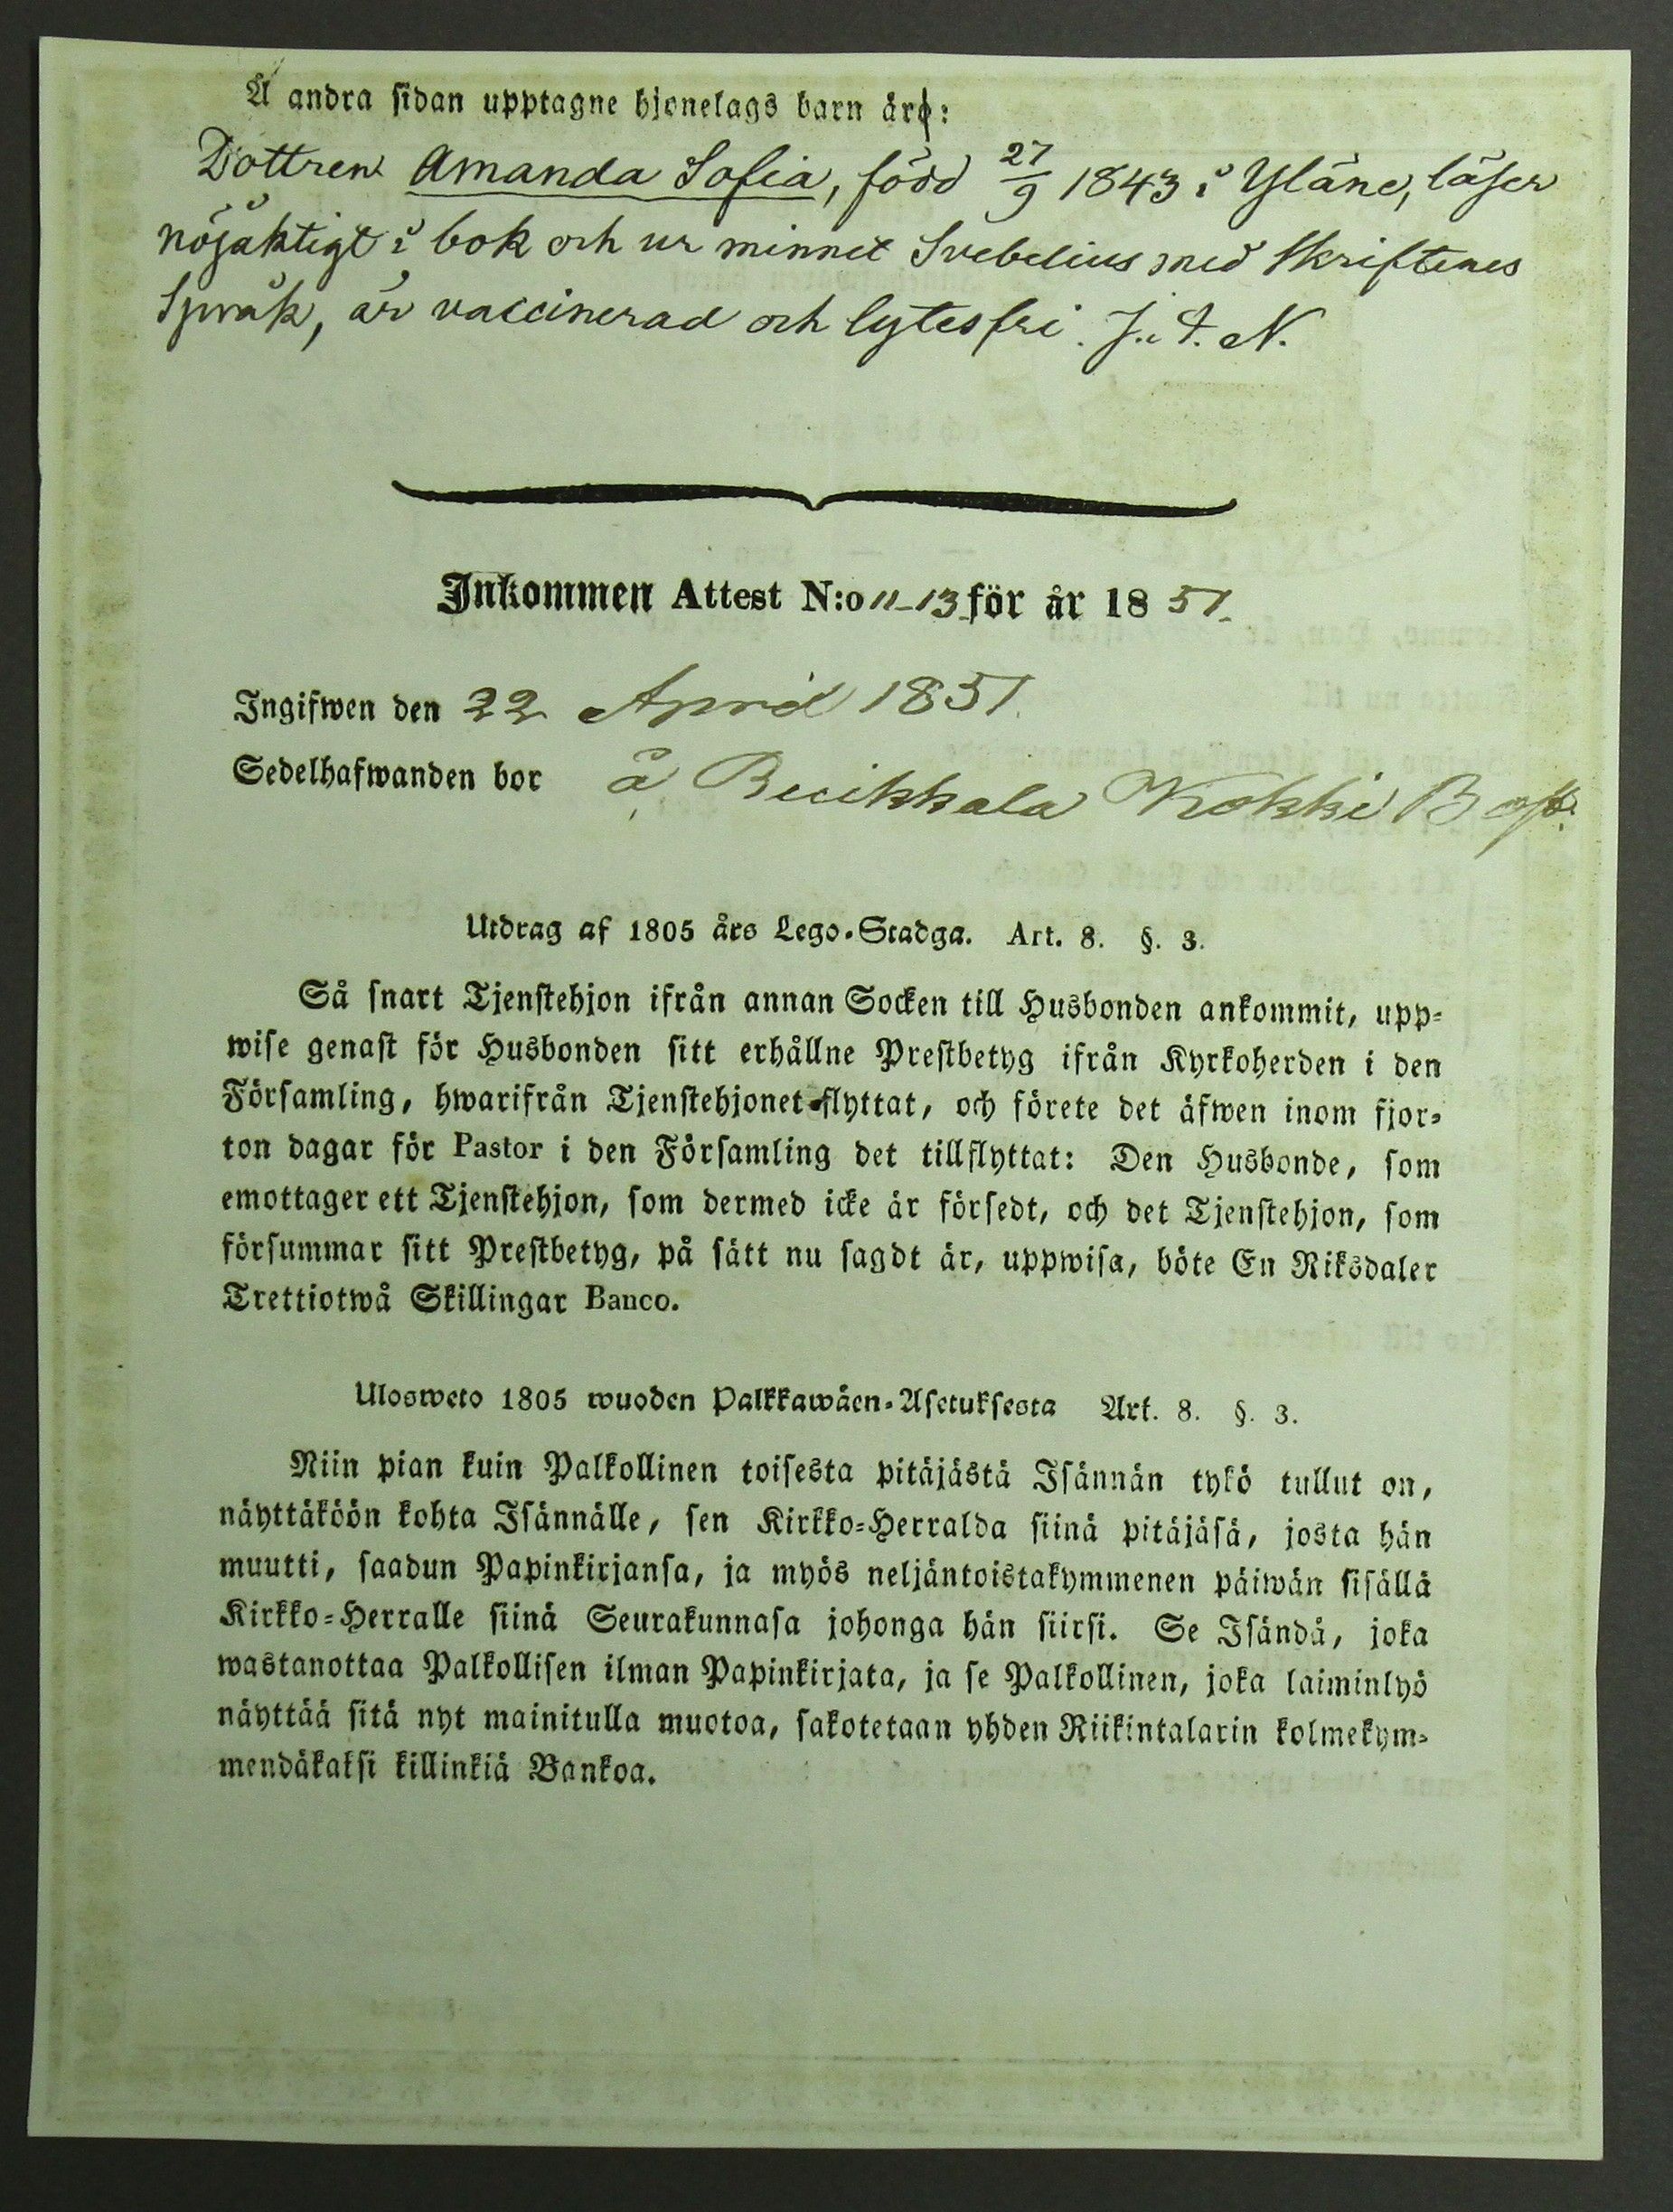 Å andra sidan upptagne hjonelags barn äro:
Dottren Amanda Sofia, född 27/9 1843 i Yläne, läser
nöjaktigt i bok och ur minnet Svebelius med Skriftenes
Språk, är vaccinerad och lytesfri. J. A. N.
Inkommen Attest N:o 11-13 för år 1851.
Ingifwen den 22 April 1851.
Sedelhafwanden bor å Kokki B
Utdrag af 1805 års Lego-Stadga. Art. 8. §. 3.
Så snart Tjenstehjon ifrån annan Socken till Husbonden ankommit, upp-
wise genast för Husbonden sitt erhållne Prestbetyg ifrån Kyrkoherden i den
Församling, hwarifrån Tjenstehjonet flyttat, och förete det äfwen inom fjor-
ton dagar för Pastor i den Församling det tillflyttat: Den Husbonde, som
emottager ett Tjenstehjon, som dermed icke är försedt, och det Tjenstehjon, som
försummar sitt Prestbetyg, på sätt nu sagdt är, uppwisa, böte En Riksdaler
Trettiotwå Skillingar Banco.
Ulosweto 1805 wuoden Palkkawäen-Asetuksesta Art. 8. §. 3.
Niin pian kuin Palkollinen toisesta pitäjästä Isännän tykö tullut on,
näyttäköön kohta Isännälle, sen Kirkko-Herralda siinä pitäjäsä, josta hän
muutti, saadun Papinkirjansa, ja myös neljäntoistakymmenen päiwän sisällä
Kirkko-Herralle siinä Seurakunnasa johonga hän siirsi. Se Isändä, joka
wastanottaa Palkollisen ilman Papinkirjata, ja se Palkollinen, joka laiminlyö
näyttää sitä nyt mainitulla muotoa, sakotetaan yhden Riikintalarin kolmekym-
mendäkaksi killinkiä Bankoa.